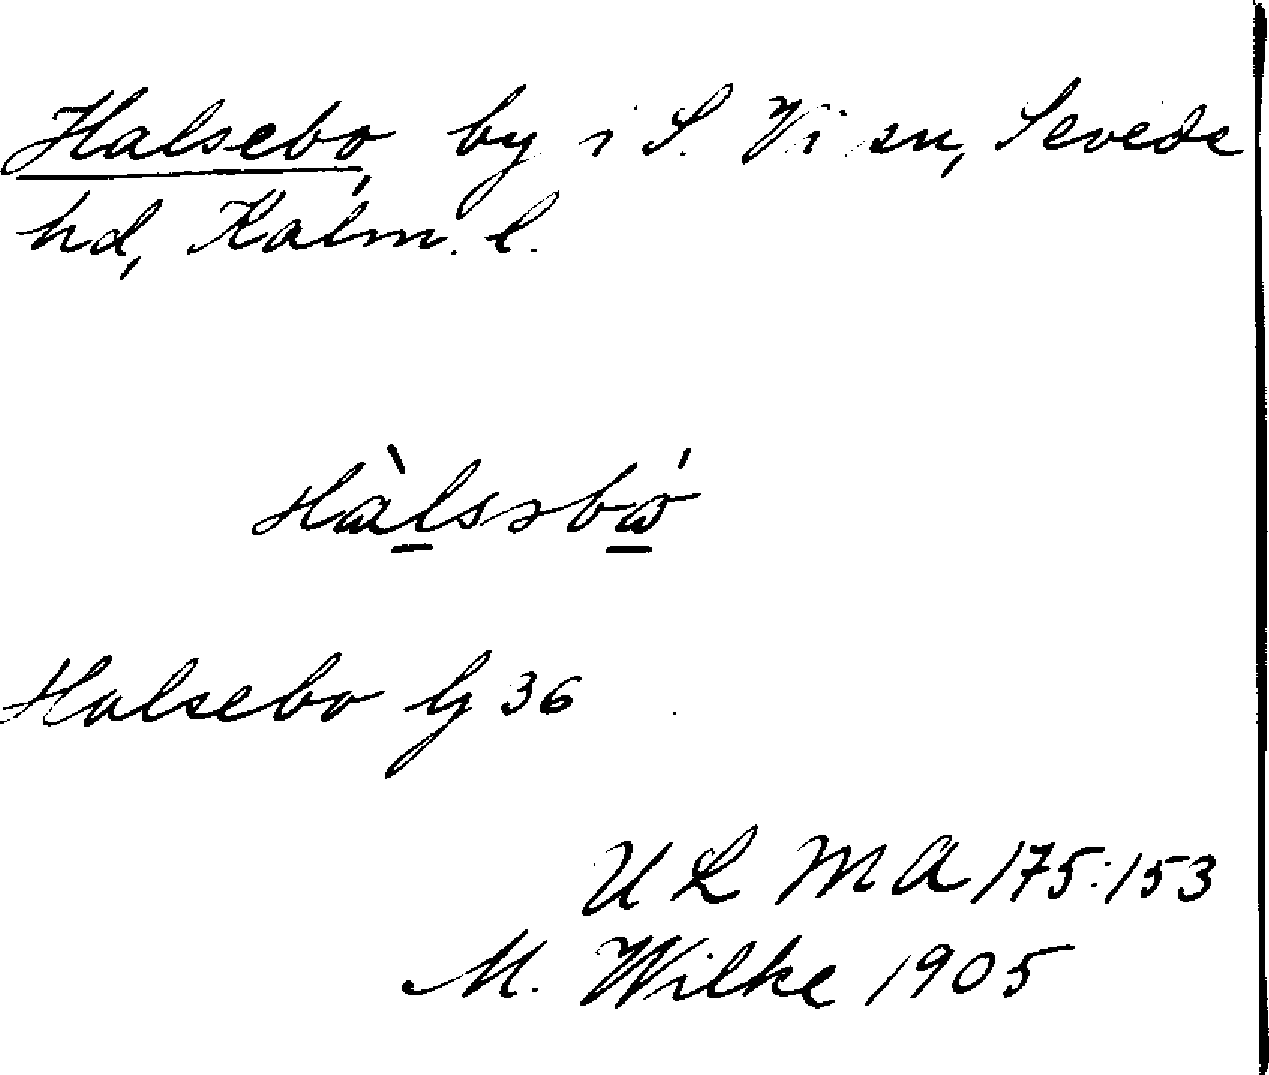 Halsebo, by i S. Vi sn, Sevede
hd, Kalm. l.
Halsebo G 36
U L M A 175:153
M. Wilke 1905